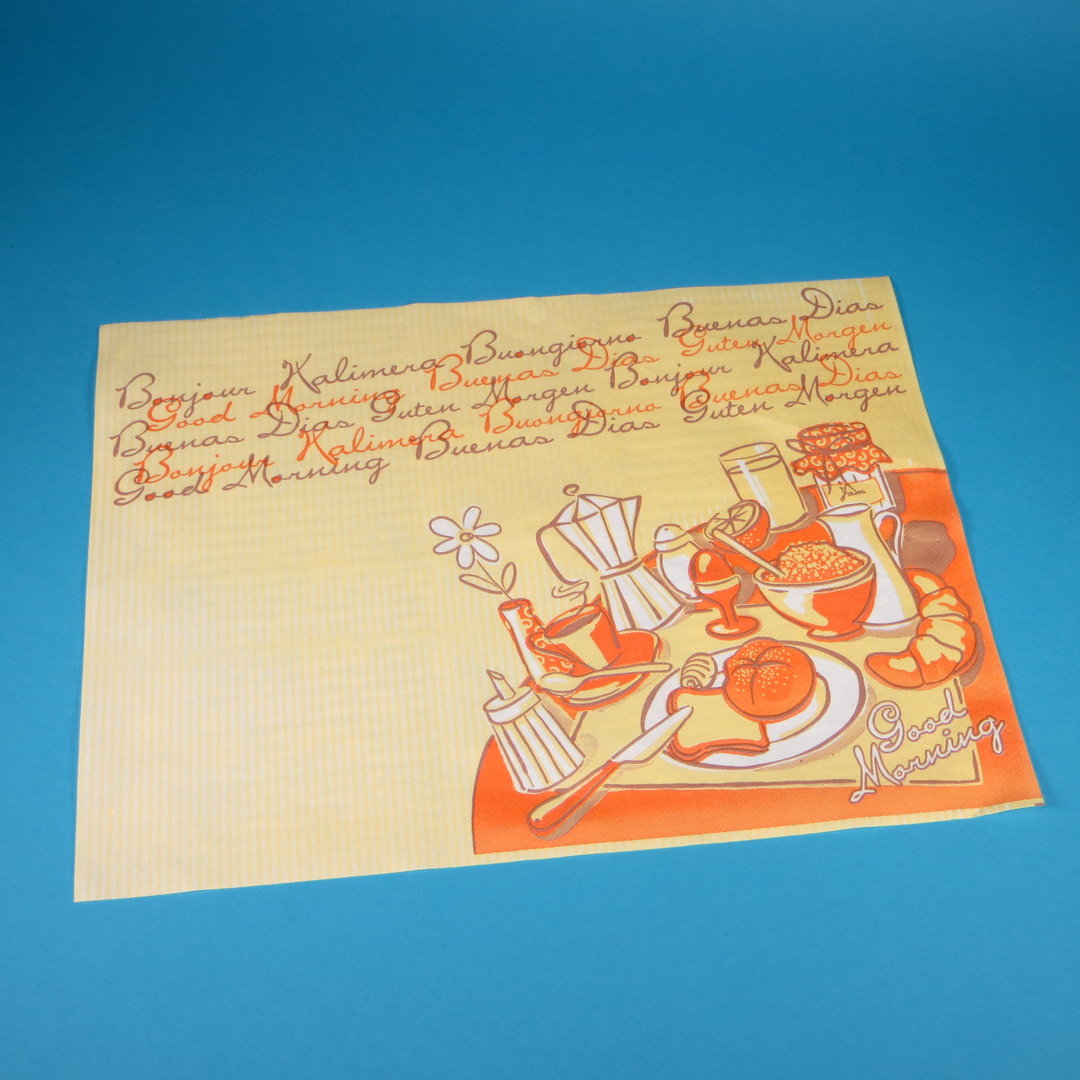 Bonjour Kalimera Buongiorno Buenas Dias
Good Morning Buenas Dias Guten Morgen
Buenas Dias Guten Morgen Bonjour Kalimera
Bonjour Kalimera Buongiorno Buenas Dias
Good Morning Buenas Dias Guten Morgen
Jam
Good
Morning